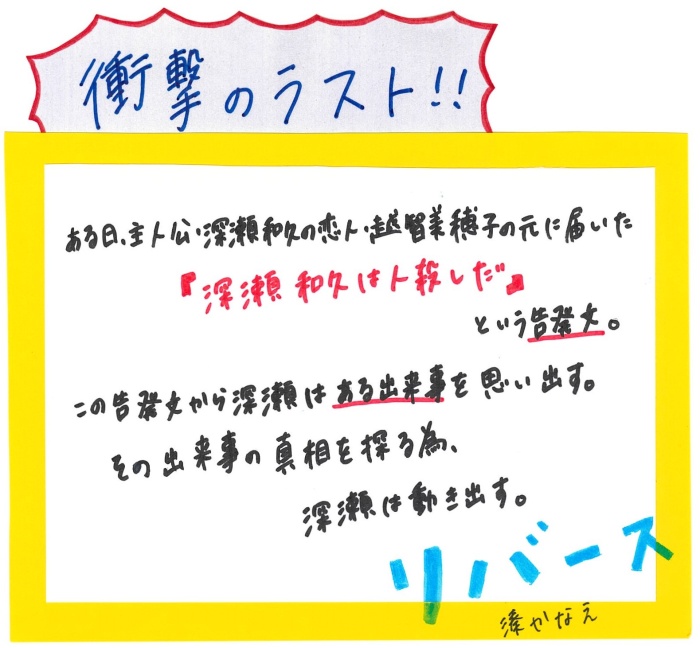 衝撃のラスト!!
ある日、主人公・深瀬和久の恋人・越智美穂子の元に届いた
『深瀬和久は人殺しだ』
という告発文。
この告発文から深瀬はある出来事を思い出す。
その出来事の真相を探る為、
深瀬は動き出す。
リバース
湊かなえ